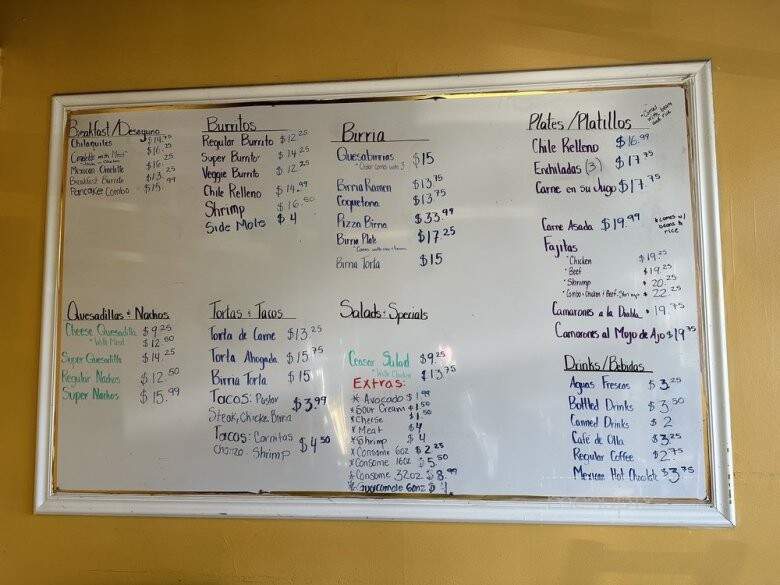 Breakfast/Desayuno
Chilaquiles $14.75
Omelette with Meat $16.25
Mexican Omelette $16.25
Breakfast Burrito $13.25
Pancake Combo $15.99
Burritos
Regular Burrito $12.25
Super Burrito $14.25
Veggie Burrito $12.25
Chile Relleno $14.99
Shrimp $16.50
Side Mole $4
Birria
Quesabirrias $15
*Order comes with 3
Birria Ramen $13.75
Coquetona $13.75
Pizza Birria $33.99
Birria Plate $17.25
Birria Torta $15
Plates/Platillos
*Comes with beans and rice
Chile Relleno $16.99
Enchiladas (3) $17.75
Carne en su Jugo $17.75
Carne Asada $19.99
*comes w/ beans & rice
Fajitas
*Chicken $19.25
*Beef $19.25
*Shrimp 20.25
*Combo: Chicken/Beef/Shrimp 22.25
Camarones a la Diabla 19.75
Camarones al Mojo de Ajo $19.75
Quesadillas & Nachos
Cheese Quesadilla $9.25
*With Meat $12.50
Super Quesadilla $14.25
Regular Nachos $12.50
Super Nachos $15.99
Tortas & Tacos
Torta de Carne $13.25
Torta Ahogada $15.75
Birria Torta $15
Tacos: Pastor
Steak, Chicken, Birria $3.99
Tacos: Carnitas
Chorizo Shrimp $4.50
Salads & Specials
Ceasar Salad $9.25
*With Chicken $13.75
Extras:
* Avocado $1.99
* Sour Cream $1.50
* Cheese $1.50
* Meat $4
* Shrimp $4
* Consome 6oz $2.25
* Consome 16oz $5.50
* Consome 32oz $8.99
* Guacamole 6onz $
Drinks/Bebidas
Aguas Frescas $3.25
Bottled Drinks $3.50
Canned Drinks $2
Café de Olla $3.25
Regular Coffee $2.75
Mexican Hot Chocolate $3.75